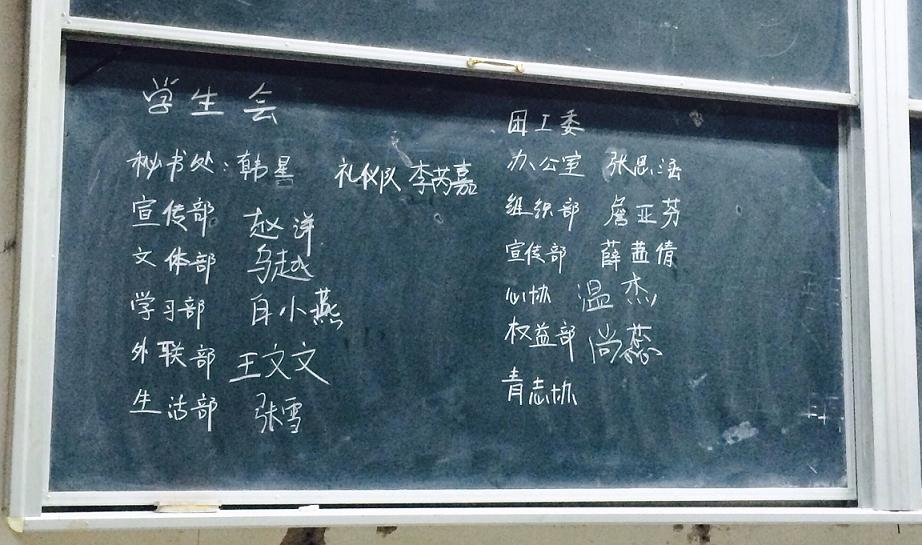 学生会
秘书处：韩星 礼仪队 李芮嘉
宣传部 赵洋
文体部 乌越
学习部 白小燕
外联部 王文文
生活部 张雪
团工委
办公室 张思洁
组织部 詹亚芬
宣传部 薛倩
心协 温杰
权益部 尚蕊
青志协